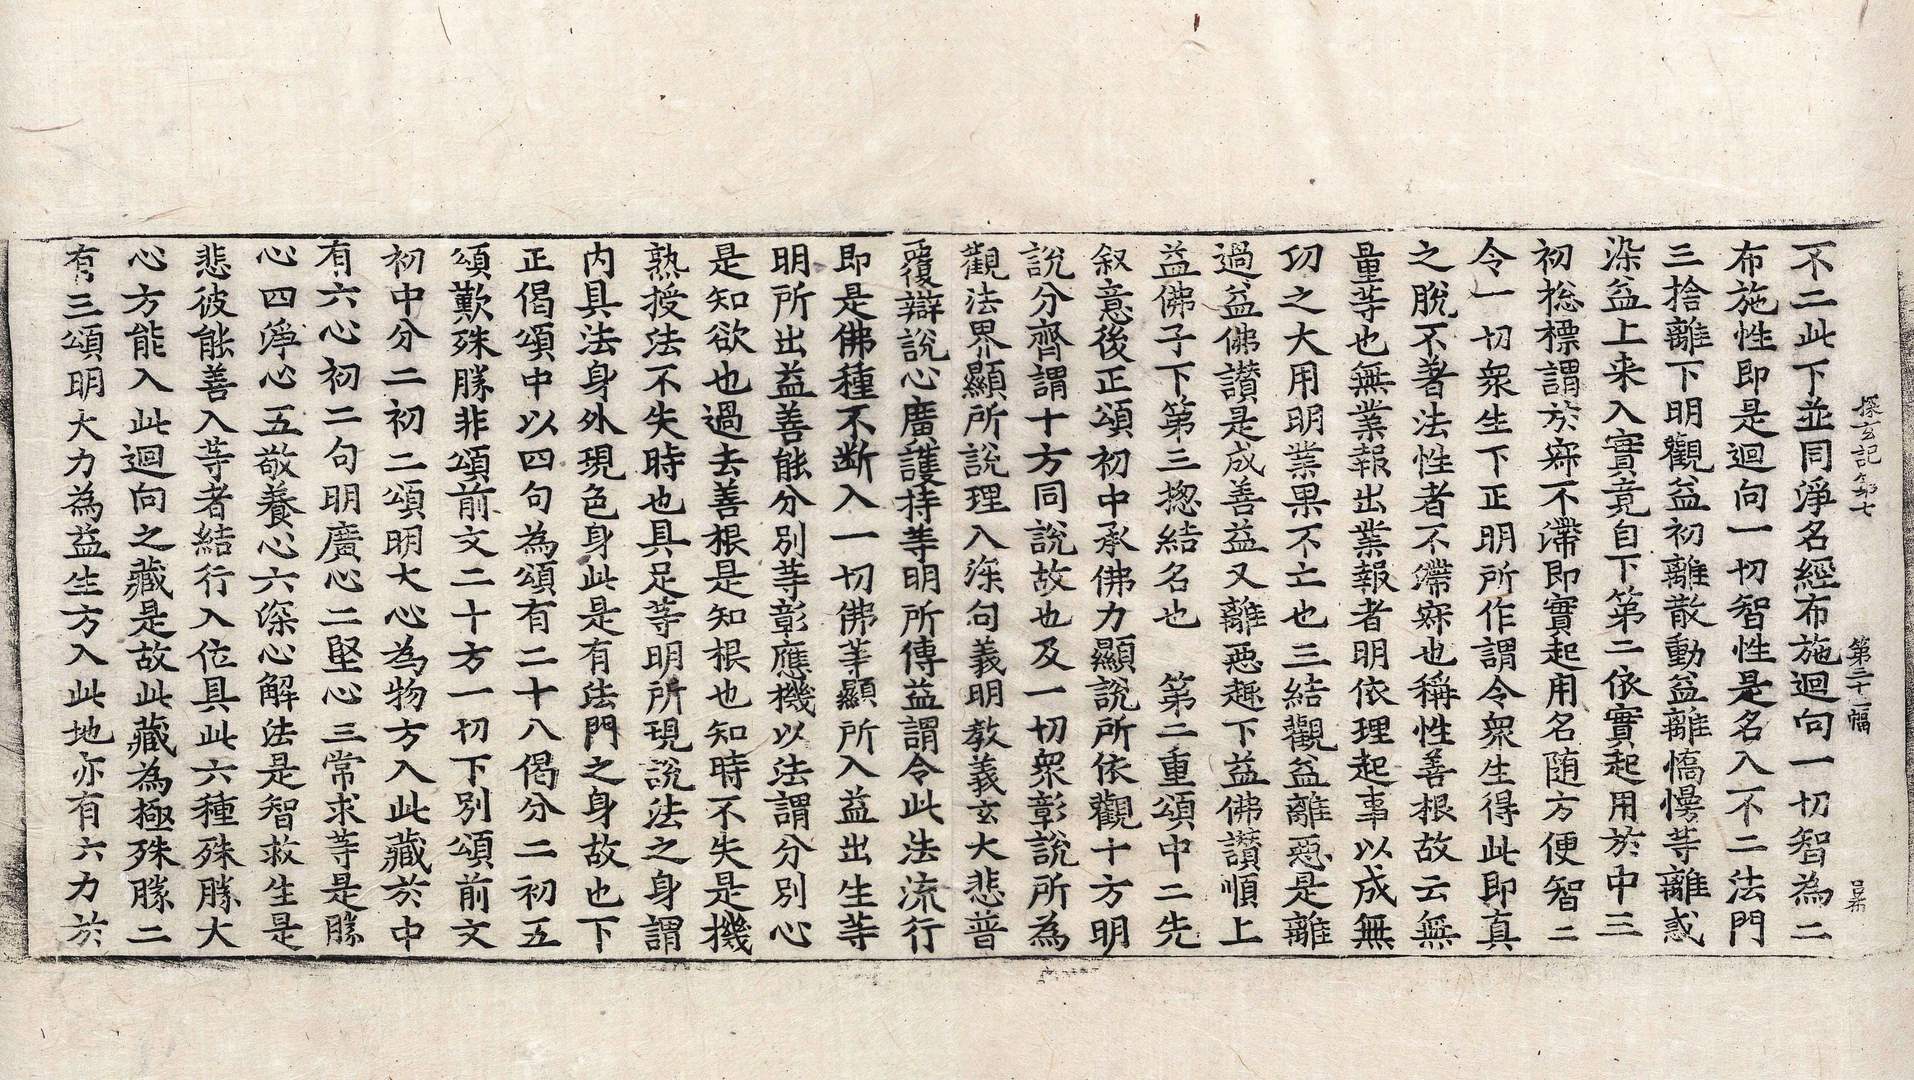 探玄記第七　第三十二幅　呂希
不二此下並同淨名經布施迴向一切智為二
布施性即是迴向一切智性是名入不二法門
三捨離下明觀益初離散動益離憍慢等離惑
染益上来入實竟自下第二依實起用於中三
初揔標謂於寂不滯即實起用名随方便智二
令一切衆生下正明所作謂令衆生得此即真
之脫不著法性者不滯寂也稱性善根故云無
量等也無業報出業報者明依理起事以成無
㓛之大用明業果不亡也三結觀益離惡是離
過益佛讃是成善益又離惡趣下益佛讃順上
益佛子下第三揔結名也　第二重頌中二先
叙意後正頌初中承佛力顯說所依觀十方明
說分齊謂十方同說故也及一切衆彰說所為
觀法界顯所說理入深句義明教義玄大悲普
覆辯說心廣護持等明所傳益謂令此法流行
即是佛種不断入一切佛等顯所入益出生等
明所出益善能分別等彰應機以法謂分別心
是知欲也過去善根是知根也知時不失是機
熟授法不失時也具足等明所現說法之身謂
内具法身外現色身此是有法門之身故也下
正偈頌中以四句為頌有二十八偈分二初五
頌歎殊勝非頌前文二十方一切下別頌前文
初中分二初二頌明大心為物方入此藏於中
有六心初二句明廣心二堅心三常求等是勝
心四淨心五敬養心六深心解法是智救生是
悲彼能善入等者結行入位具此六種殊勝大
心方能入此迴向之藏是故此藏為極殊勝二
有三頌明大力為益生方入此地亦有六力於